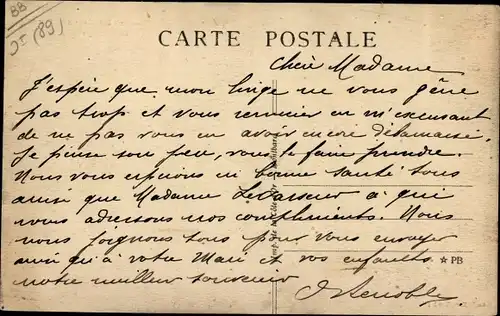 88
(89)
CARTE POSTALE
Chère Madame
J'espère que mon linge ne vous gêne
pas trop et vous remercier en m'excusant
de ne pas vous en avoir encore débarrassé.
Je pense sous peu, vous le faire prendre.
Nous vous espérons en bonne santé tous
ainsi que Madame Levasseur à qui
nous adressons nos compliments. Nous
nous joignons tous pour vous envoyer
ainsi qu'à votre Mari et vos enfants
notre meilleur souvenir
★ PB